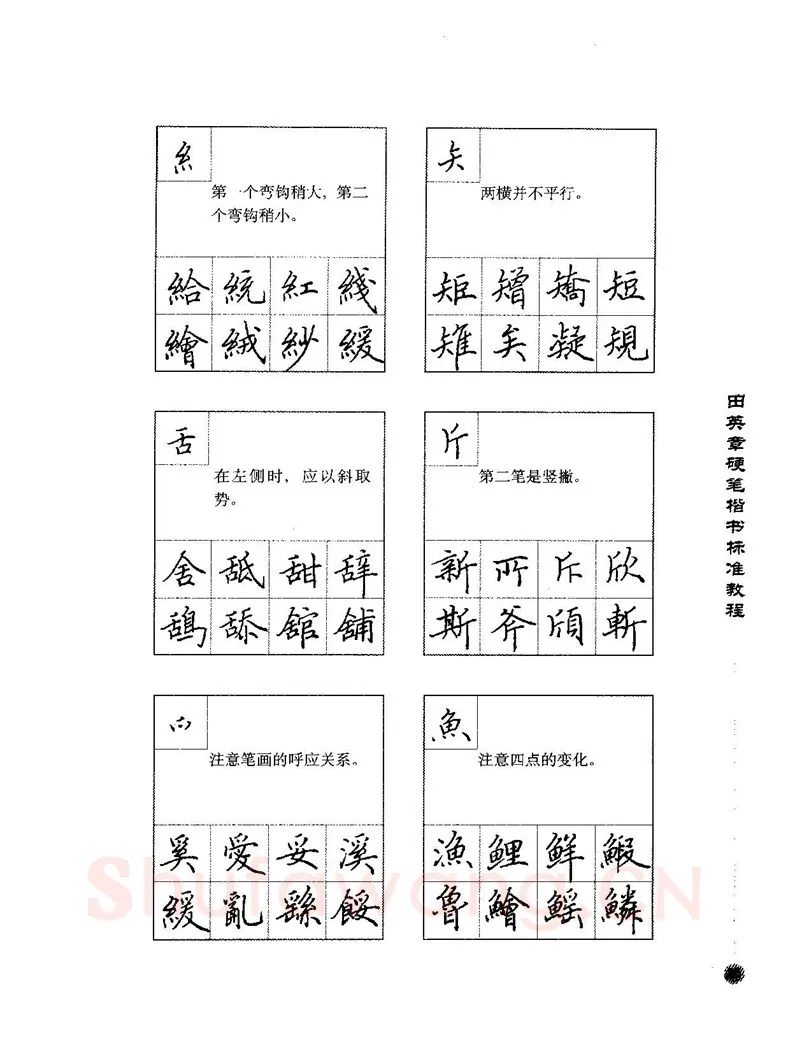 糹
第一个弯钩稍大，第二
个弯钩稍小。
給統紅綫
繪絨紗緩
矢
两横并不平行。
矩矰矯短
雉矣凝規
舌
在左侧时，应以斜取
势。
舍舐甜辞
鴰舔舘舖
斤
第二笔是竖撇。
新所斥欣
斯斧頎斬
爫
注意笔画的呼应关系。
奚愛妥溪
緩亂繇餒
魚
注意四点的变化。
漁鯉鮮鰕
魯鱠鰩鱗
田英章硬笔楷书标准教程
Shufawang.CN